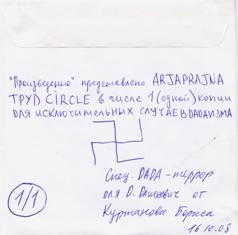 "Произведение" представлено ARJAPRAJNA
ТРУД CIRCLE в числе 1 (одной) копии
для исключительных случаев DADAИЗМА
Спец. DADA-террор
для D. Дашкевич от
Курманова Бориса
1/1
16.10.08